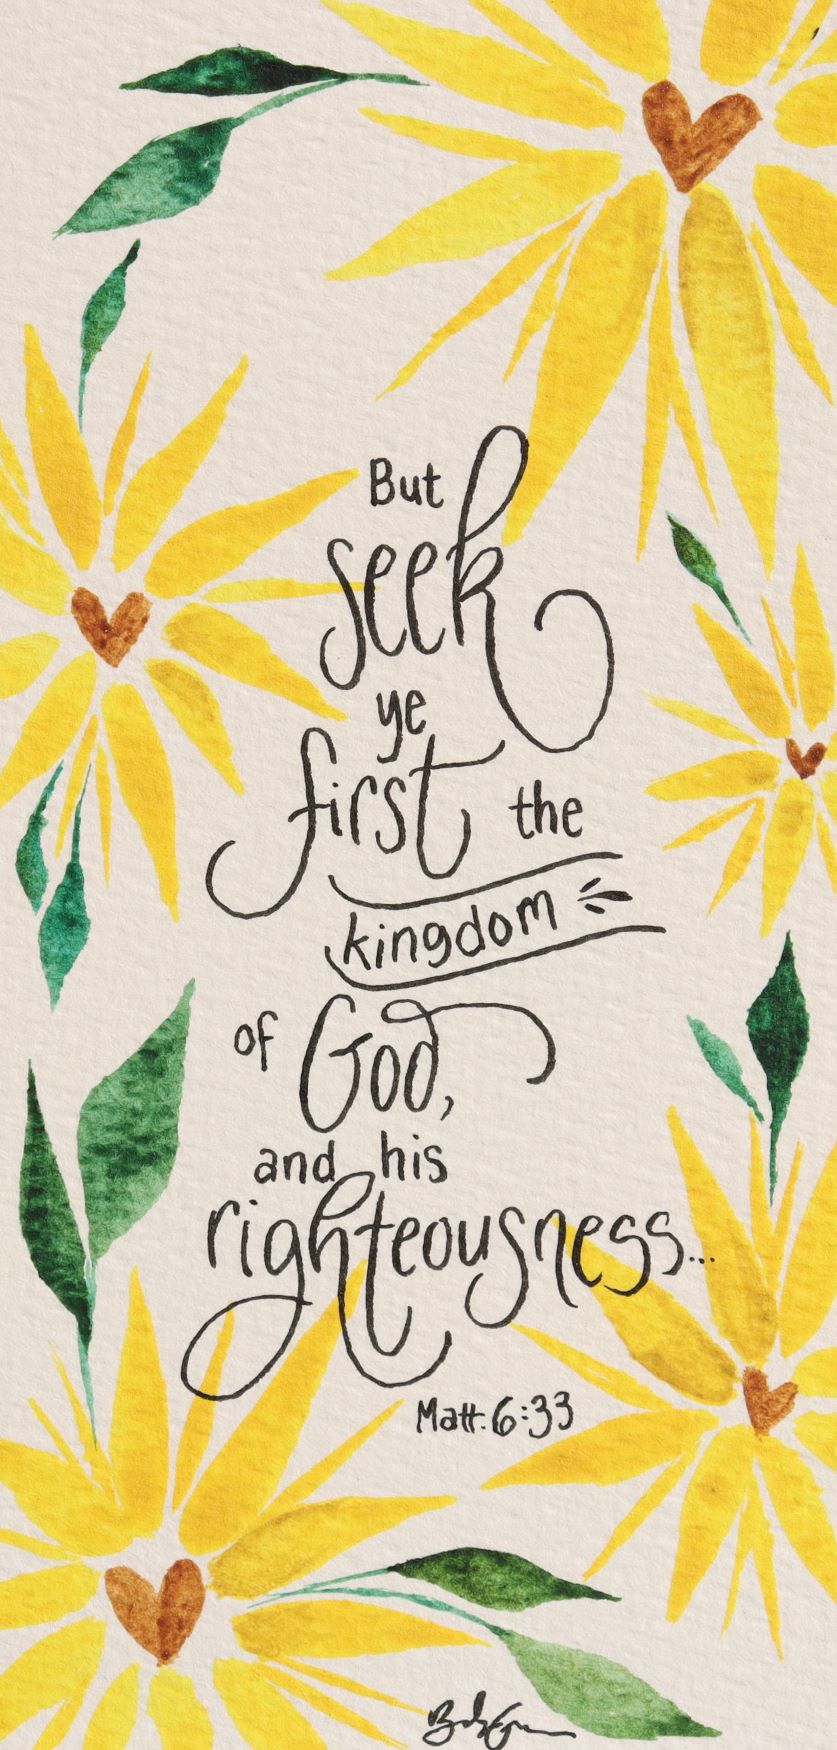 But
seek
ye
first the
kingdom
of God,
and his
righteousness...
Matt. 6:33